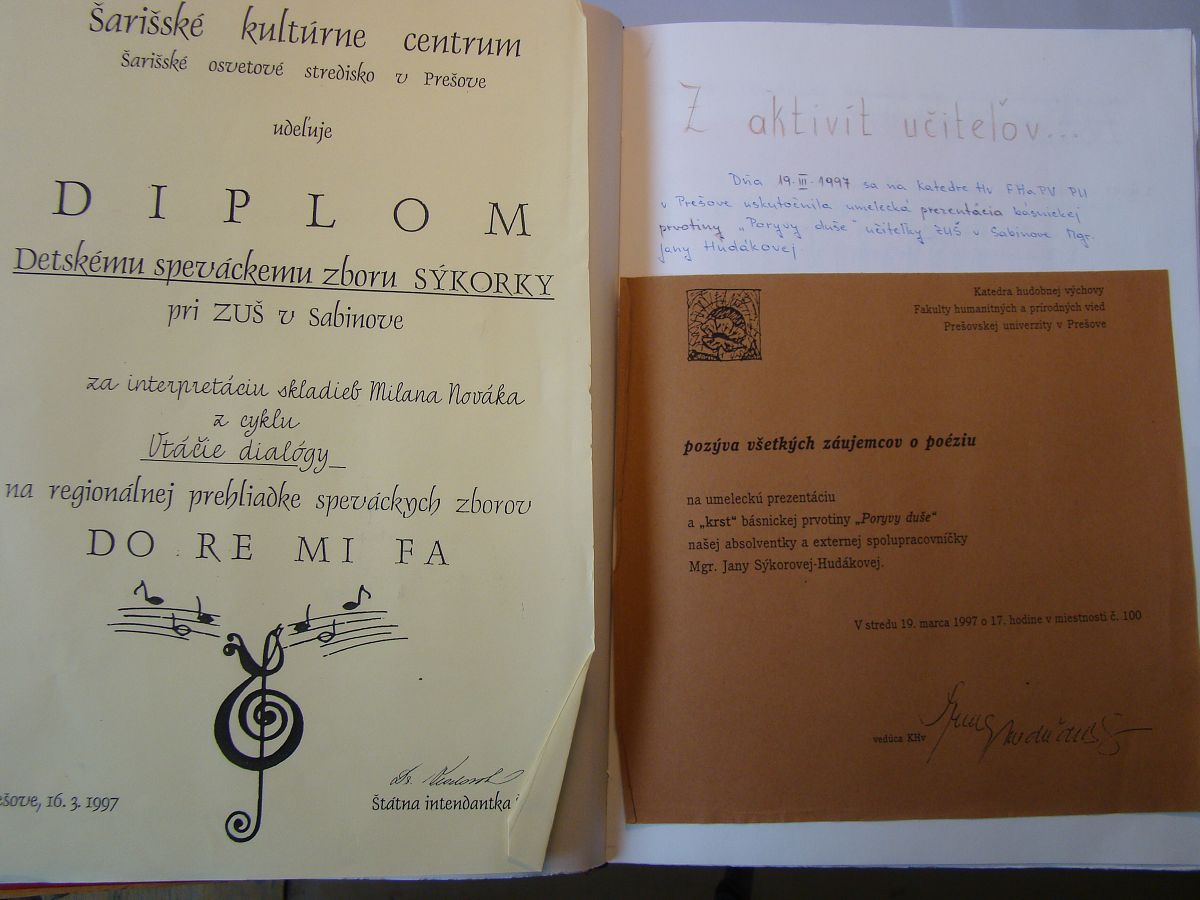 Šarišské kultúrne centrum
Šarišské osvetové stredisko v Prešove
udeľuje
DIPLOM
Detskému speváckemu zboru SÝKORKY
pri ZUŠ v Sabinove
za interpretáciu skladieb Milana Nováka
z cyklu
Vtáčie dialógy
na regionálnej prehliadke speváckych zborov
DO RE MI FA
ešove, 16. 3. 1997
Štátna intendantka
Z aktivít učiteľov...
Dňa 19. III. 1997 sa na Katedre Hv FHaPV PU
v Prešove uskutočnila umelecká prezentácia básnickej
prvotiny „Poryvy duše" učiteľky ZUŠ v Sabinove Mgr.
Jany Hudákovej.
Katedra hudobnej výchovy
Fakulty humanitných a prírodných vied
Prešovskej univerzity v Prešove
pozýva všetkých záujemcov o poéziu
na umeleckú prezentáciu
a „krst“ básnickej prvotiny „Poryvy duše“
našej absolventky a externej spolupracovníčky
Mgr. Jany Sýkorovej-Hudákovej.
V stredu 19. marca 1997 o 17. hodine v miestnosti č. 100
vedúca KHv